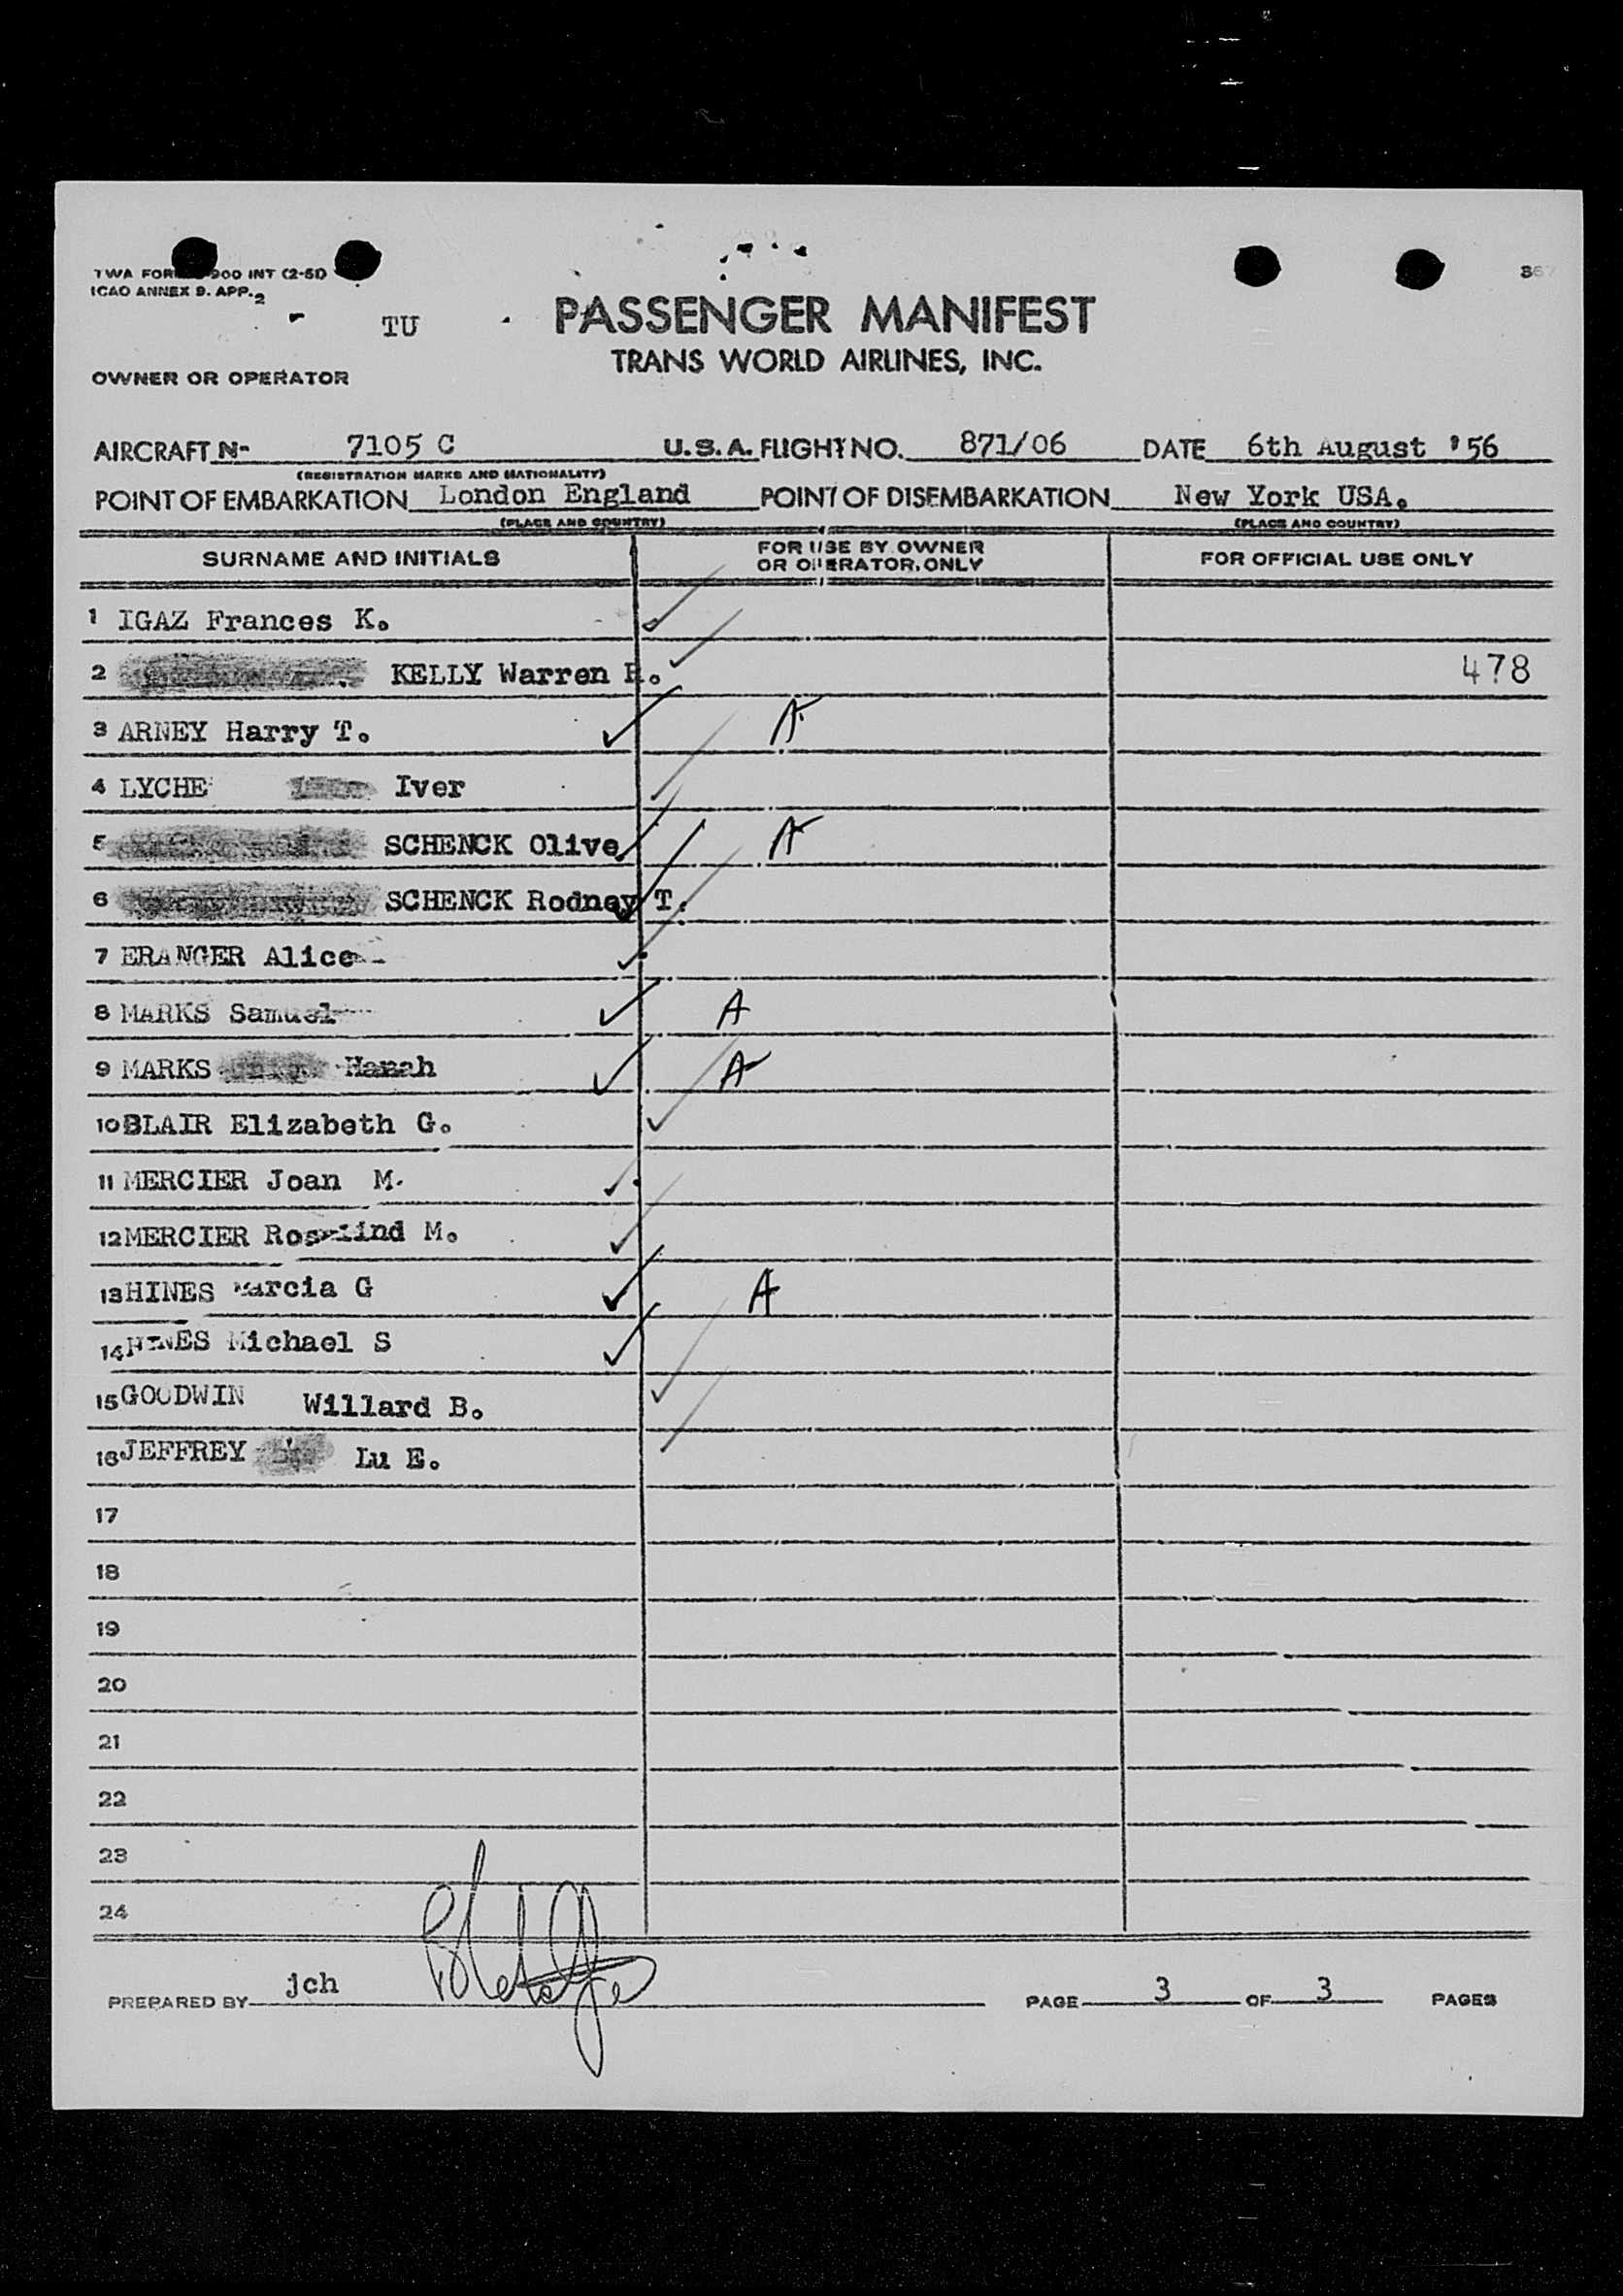 TWA FOR 900 INT (2-51)
ICAO ANNEX 9. APP. 2
367
TU
PASSENGER MANIFEST
TRANS WORLD AIRLINES, INC.
OWNER OR OPERATOR
AIRCRAFT N- 7105 C U.S.A. FLIGHT NO. 871/06 DATE 6th August '56
(REGISTRATION MARKS AND NATIONALITY)
POINT OF EMBARKATION London England POINT OF DISEMBARKATION New York USA.
(PLACE AND COUNTRY) (PLACE AND COUNTRY)
SURNAME AND INITIALS FOR USE BY OWNER OR OPERATOR ONLY FOR OFFICIAL USE ONLY
1 IGAZ Frances K.
2 KELLY Warren R. 478
3 ARNEY Harry T. A
4 LYCHE Iver
5 SCHENCK Olive A
6 SCHENCK Rodney T.
7 ERANGER Alice
8 MARKS Samuel A
9 MARKS Hanah A
10 BLAIR Elizabeth G.
11 MERCIER Joan M.
12 MERCIER Rosalind M.
13 HINES Marcia G A
14 HINES Michael S
15 GOODWIN Willard B.
16 JEFFREY Lu E.
17
18
19
20
21
22
23
24
PREPARED BY jch PAGE 3 OF 3 PAGES